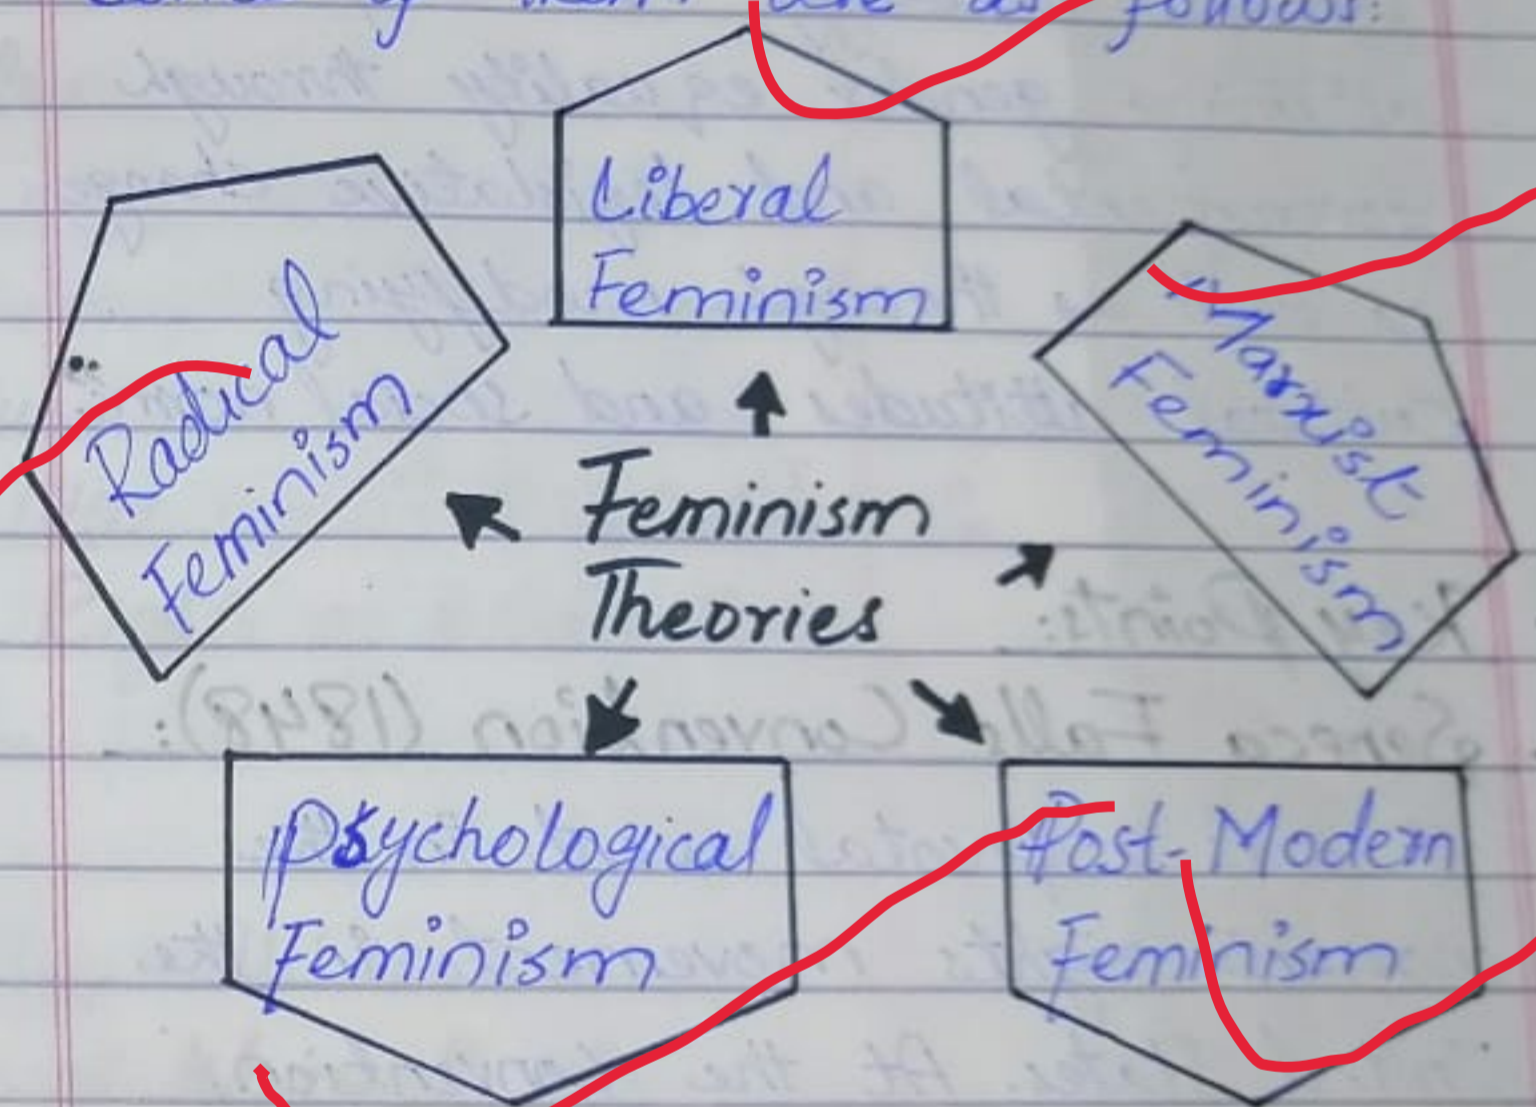 of them are as follows:
Liberal
Feminism
Radical
Feminism
Marxist
Feminism
Feminism
Theories
Psychological
Feminism
Post-Modern
Feminism